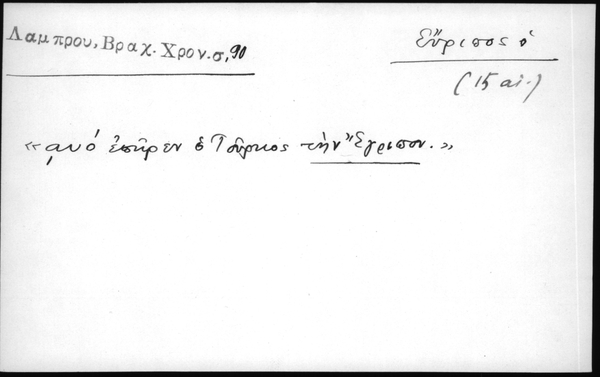 Λαμπρου, Βραχ. Χρον. σ, 90
Εὔριπος ὁ
(15 αἰ.)
«αυό ἐπῆρεν ὁ Τοῦρκος τὴν Ἔγριπον.»